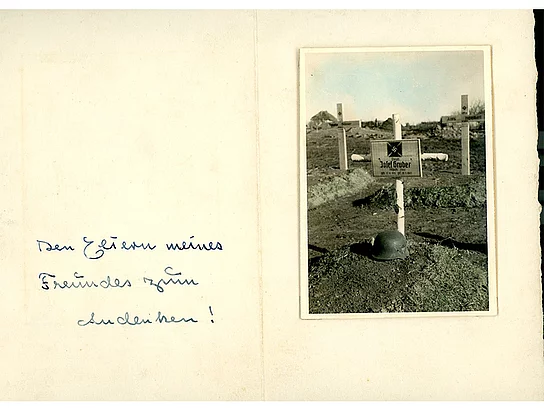 Den Eltern meines
Freundes zum
Andenken!
Josef Gruber